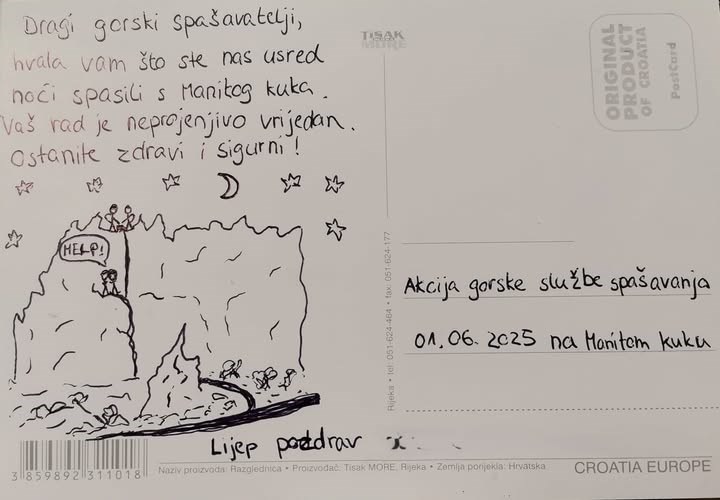 Dragi gorski spašavatelji,
hvala vam što ste nas usred
noći spasili s Manitog kuka.
Vaš rad je neprojenjivo vrijedan.
Ostanite zdravi i sigurni!
HELP!
Lijep pozdrav
3 859892 311018
Naziv proizvoda: Razglednica • Proizvođač: Tisak MORE, Rijeka • Zemlja porijekla: Hrvatska
TISAK
MORE
Rijeka • tel: 051-624-464 • fax. 051-624-177
ORIGINAL
PRODUCT
OF CROATIA
PostCard
Akcija gorske službe spašavanja
01.06.2025 na Manitom kuku
CROATIA EUROPE